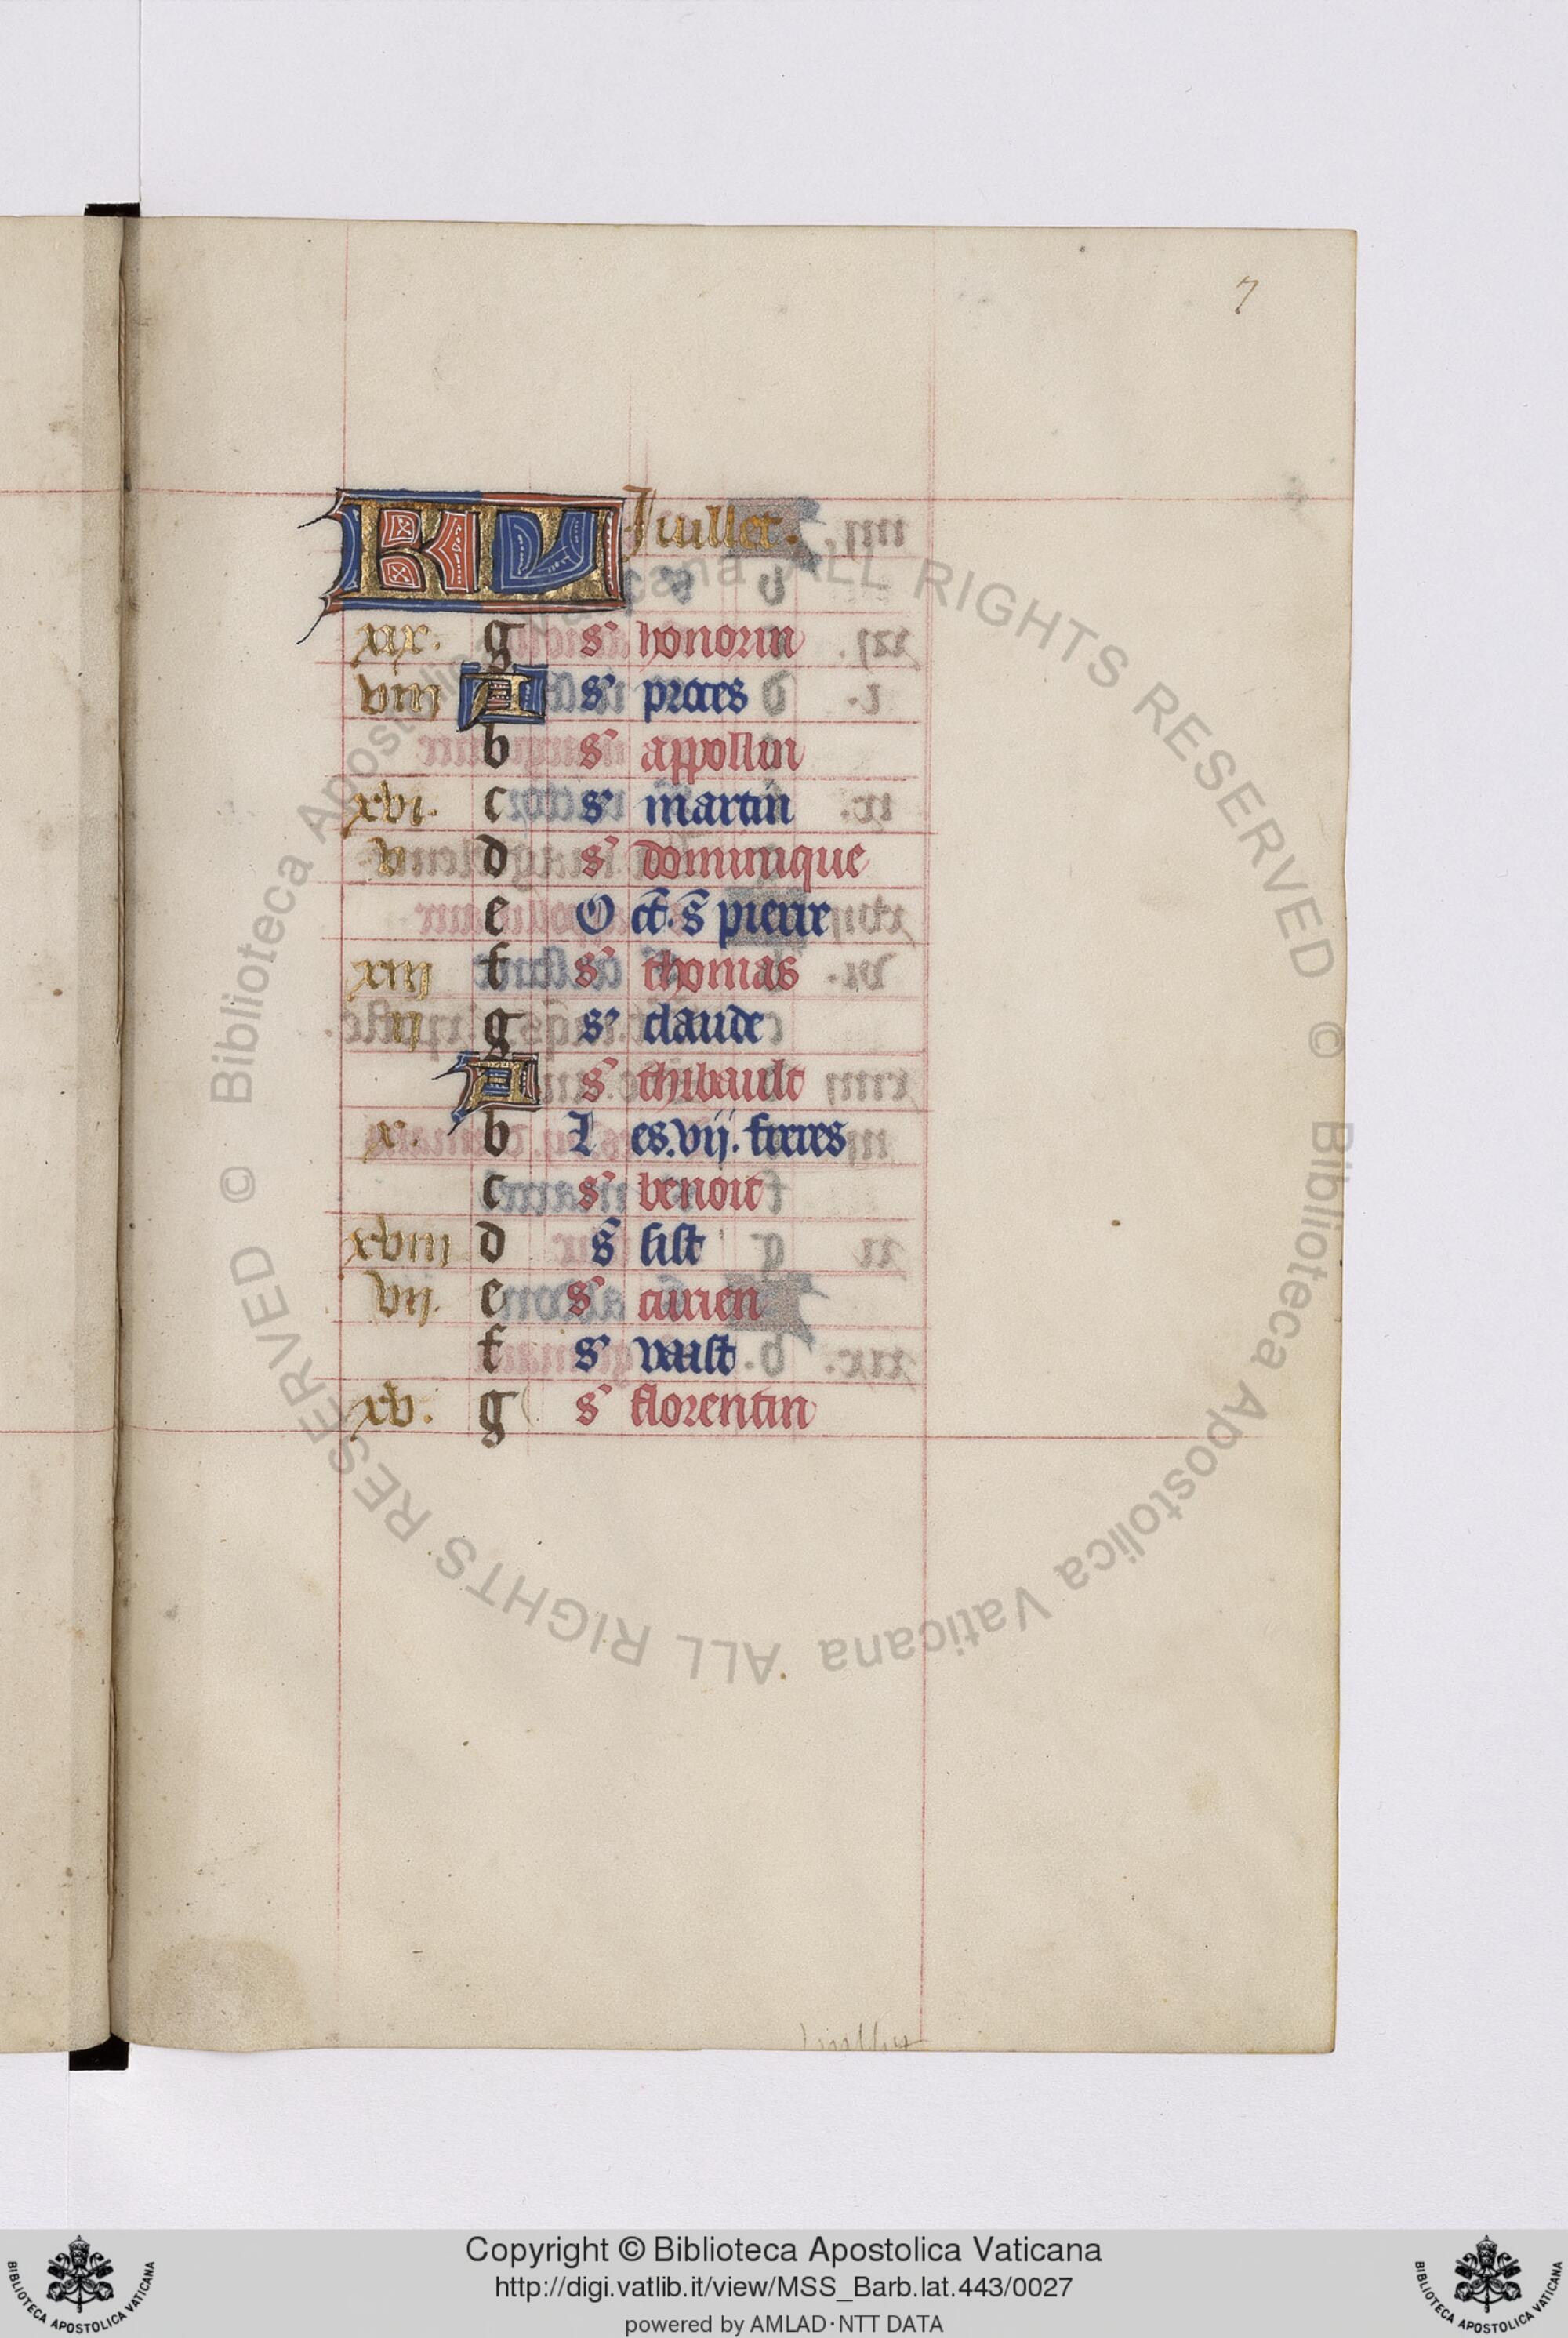 7
KL Juillet.
xix. g s' honorin
viii A s' proces
b s' appollin
xvi. c s' martin
v. d s' dominique
e Oct. s̄ pierre
xiii f s' thomas
ii g s' claude
A s' thibault
x. b Les. vii. freres
c s' benoit
xviii d s̄ sist
vii. e s' turien
f s' vaast
xv. g s' florentin
© Biblioteca Apostolica Vaticana ALL RIGHTS RESERVED © Biblioteca Apostolica Vaticana ALL RIGHTS RESERVED
Copyright © Biblioteca Apostolica Vaticana
http://digi.vatlib.it/view/MSS_Barb.lat.443/0027
powered by AMLAD·NTT DATA
BIBLIOTECA APOSTOLICA VATICANA
BIBLIOTECA APOSTOLICA VATICANA